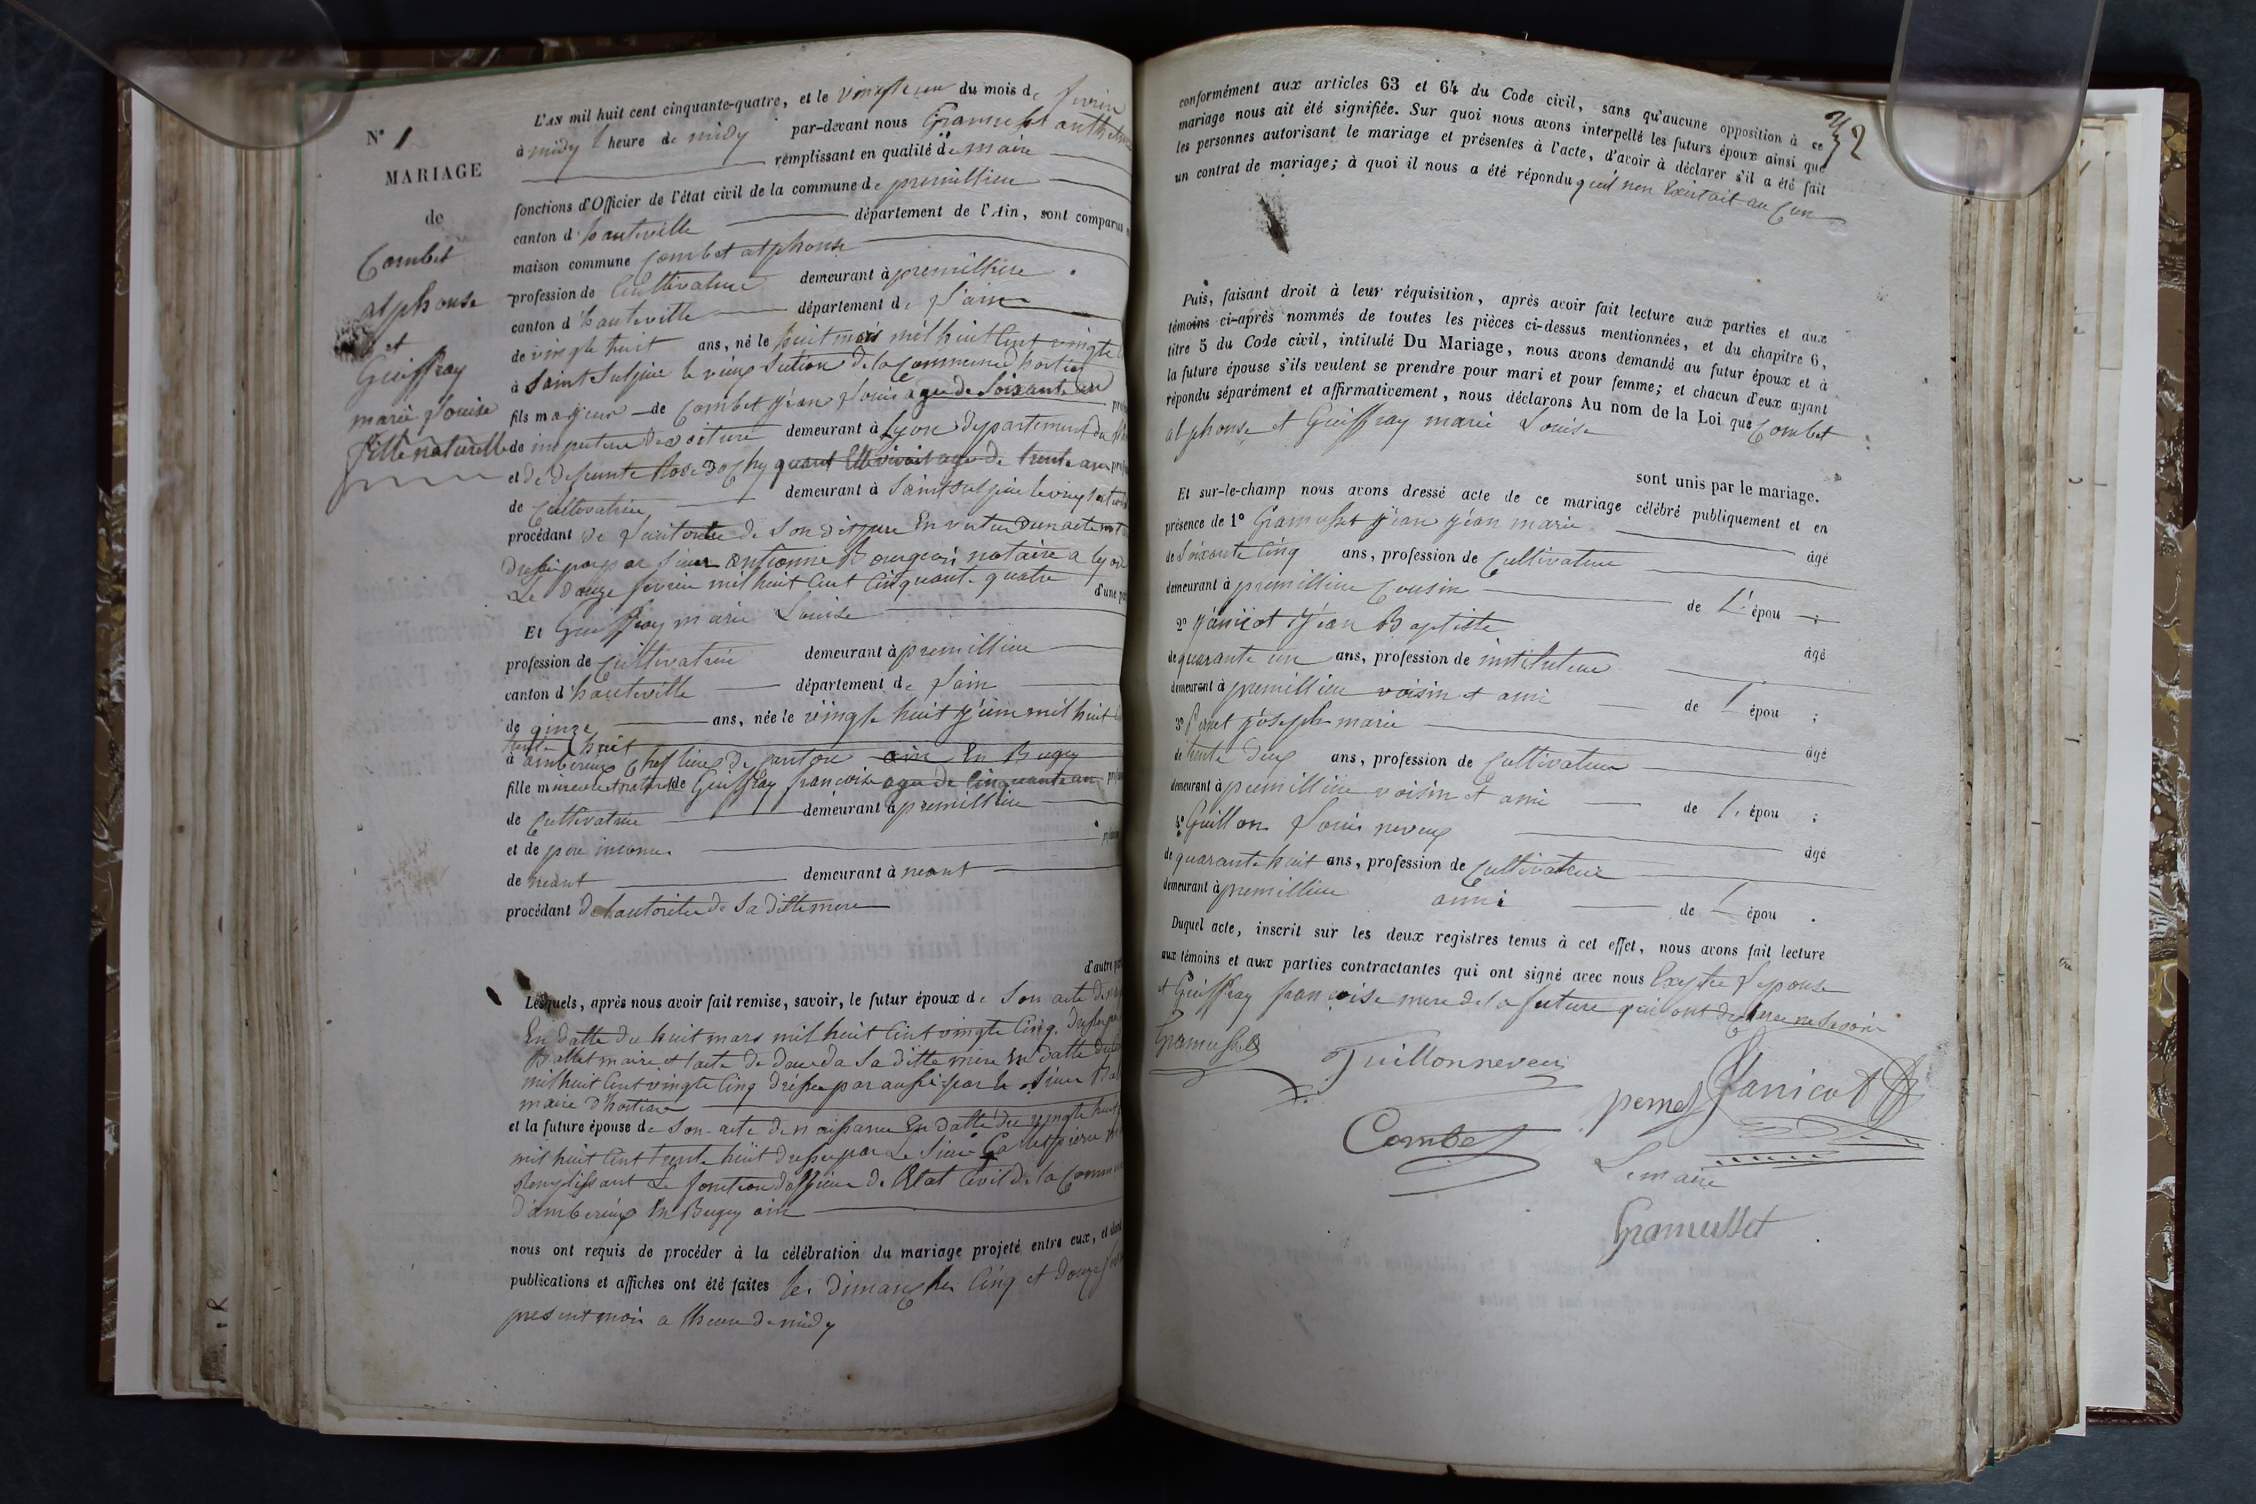 N° 1
MARIAGE
de
Combet
alphonse
et
Guiffray
marie Louise
fille naturelle
L'AN mil huit cent cinquante-quatre, et le vingt un du mois de fevrier
à midy heure de midy par-devant nous Gramusset anth
remplissant en qualité de maire
fonctions d'Officier de l'état civil de la commune de premillieu
canton d'hauteville département de l'Ain, sont comparus
maison commune Combet alphonse
profession de Cultivateur demeurant à premillieu
canton d'hauteville département de l'ain
de vingt huit ans, né le huit mars mil huit Cent vingt
à Saint Sulpice le vieux section de la Commune d'hostias
fils majeur de Combet Jean Louis age de Soixante un
de inspecteur de voiture demeurant à Lyon departement du
et de defunte Rose Dochy quant Elle vivoit age de trente ans
de Cultivatrice demeurant à Saint Sulpice le vieux
procédant de l'autorité de Son dit pere En vertu d'un acte
dressé par Sieur antionne Bourgeois notaire a lyon
Le douze fevrier mil huit Cent Cinquante quatre d'une par
Et Guiffray marie Louise
profession de Cultivatrice demeurant à premillieu
canton d'hauteville département de l'ain
de quinze ans, née le vingt huit juin mil huit
trente huit
à amberieux Chef lieu de Canton ain En Bugey
fille mineure et naturelle de Guiffray françoise age de Cinquante an
de Cultivatrice demeurant à premillieu
et de père inconnu
de neant demeurant à neant
procédant de l'autorité de Sa ditte mere
d'autre par
Lesquels, après nous avoir fait remise, savoir, le futur époux de Son acte de
En datte du huit mars mil huit Cent vingt Cinq dressé par
Ballet maire et l'acte de de Sa ditte mere En datte du
mil huit Cent vingt Cinq dréssé par aussi par le Sieur
maire d'hostias
et la future épouse de Son acte de naissance En datte du vingt huit
mil huit Cent trente huit dressé par Le Sieur pierre
Remplissant Le fonction d'officier de l'Etat Civil de la Commune
d'amberieux En Bugey ain
nous ont requis de procéder à la célébration du mariage projeté entre eux, et dont
publications et affiches ont été faites les dimanches Cinq et douze
present mois a lheure de midy
32
conformément aux articles 63 et 64 du Code civil, sans qu'aucune opposition à ce
mariage nous ait été signifiée. Sur quoi nous avons interpellé les futurs époux ainsi que
les personnes autorisant le mariage et présentes à l'acte, d'avoir à déclarer s'il a été fait
un contrat de mariage; à quoi il nous a été répondu quil nen Existait aucun
Puis, faisant droit à leur réquisition, après avoir fait lecture aux parties et aux
témoins ci-après nommés de toutes les pièces ci-dessus mentionnées, et du chapitre 6,
titre 5 du Code civil, intitulé Du Mariage, nous avons demandé au futur époux et à
la future épouse s'ils veulent se prendre pour mari et pour femme; et chacun d'eux ayant
répondu séparément et affirmativement, nous déclarons Au nom de la Loi que Combet
alphonse et Guiffray marie Louise
sont unis par le mariage.
Et sur-le-champ nous avons dressé acte de ce mariage célébré publiquement et en
présence de 1° Gramusset Jean Jean marie âgé
de Soixante Cinq ans, profession de Cultivateur
demeurant à premillieu Cousin de L' épou ;
2° Janicot Jean Baptiste âgé
de quarante un ans, profession de instituteur
demeurant à premillieu voisin et ami de L' épou ;
3° Pernet Joseph marie âgé
de trente deux ans, profession de Cultivateur
demeurant à premillieu voisin et ami de L' épou ;
4° Guillon Louis neveux âgé
de quarante huit ans, profession de Cultivateur
demeurant à premillieu ami de L' épou .
Duquel acte, inscrit sur les deux registres tenus à cet effet, nous avons fait lecture
aux témoins et aux parties contractantes qui ont signé avec nous Excepté l'epouse
et Guiffray françoise mere de la future qui ont declaré ne Savoir
Gramusset
Guillon neveu
pernet Janicot
Combet
Le maire
Gramusset